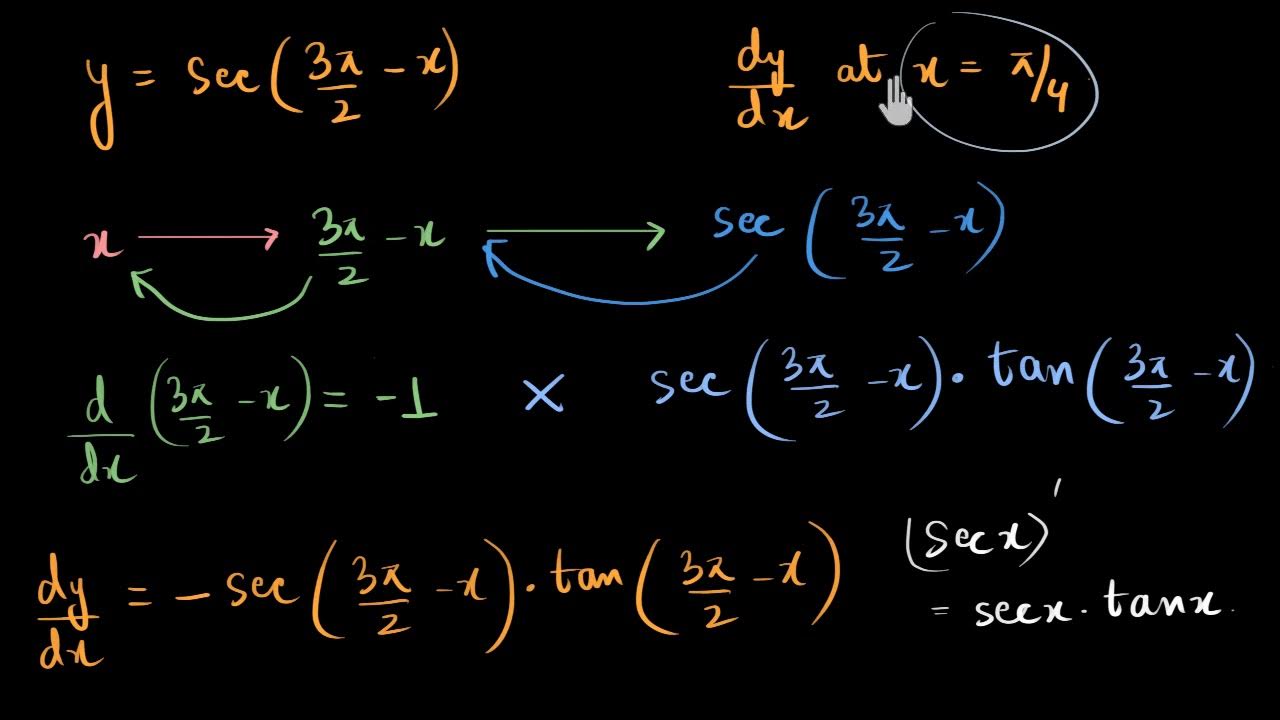 y = sec(3π/2 - x)
dy/dx at x = π/4
x → 3π/2 - x → sec(3π/2 - x)
d/dx(3π/2 - x) = -1 × sec(3π/2 - x) · tan(3π/2 - x)
dy/dx = - sec(3π/2 - x) · tan(3π/2 - x)
(sec x)'
= sec x · tan x.